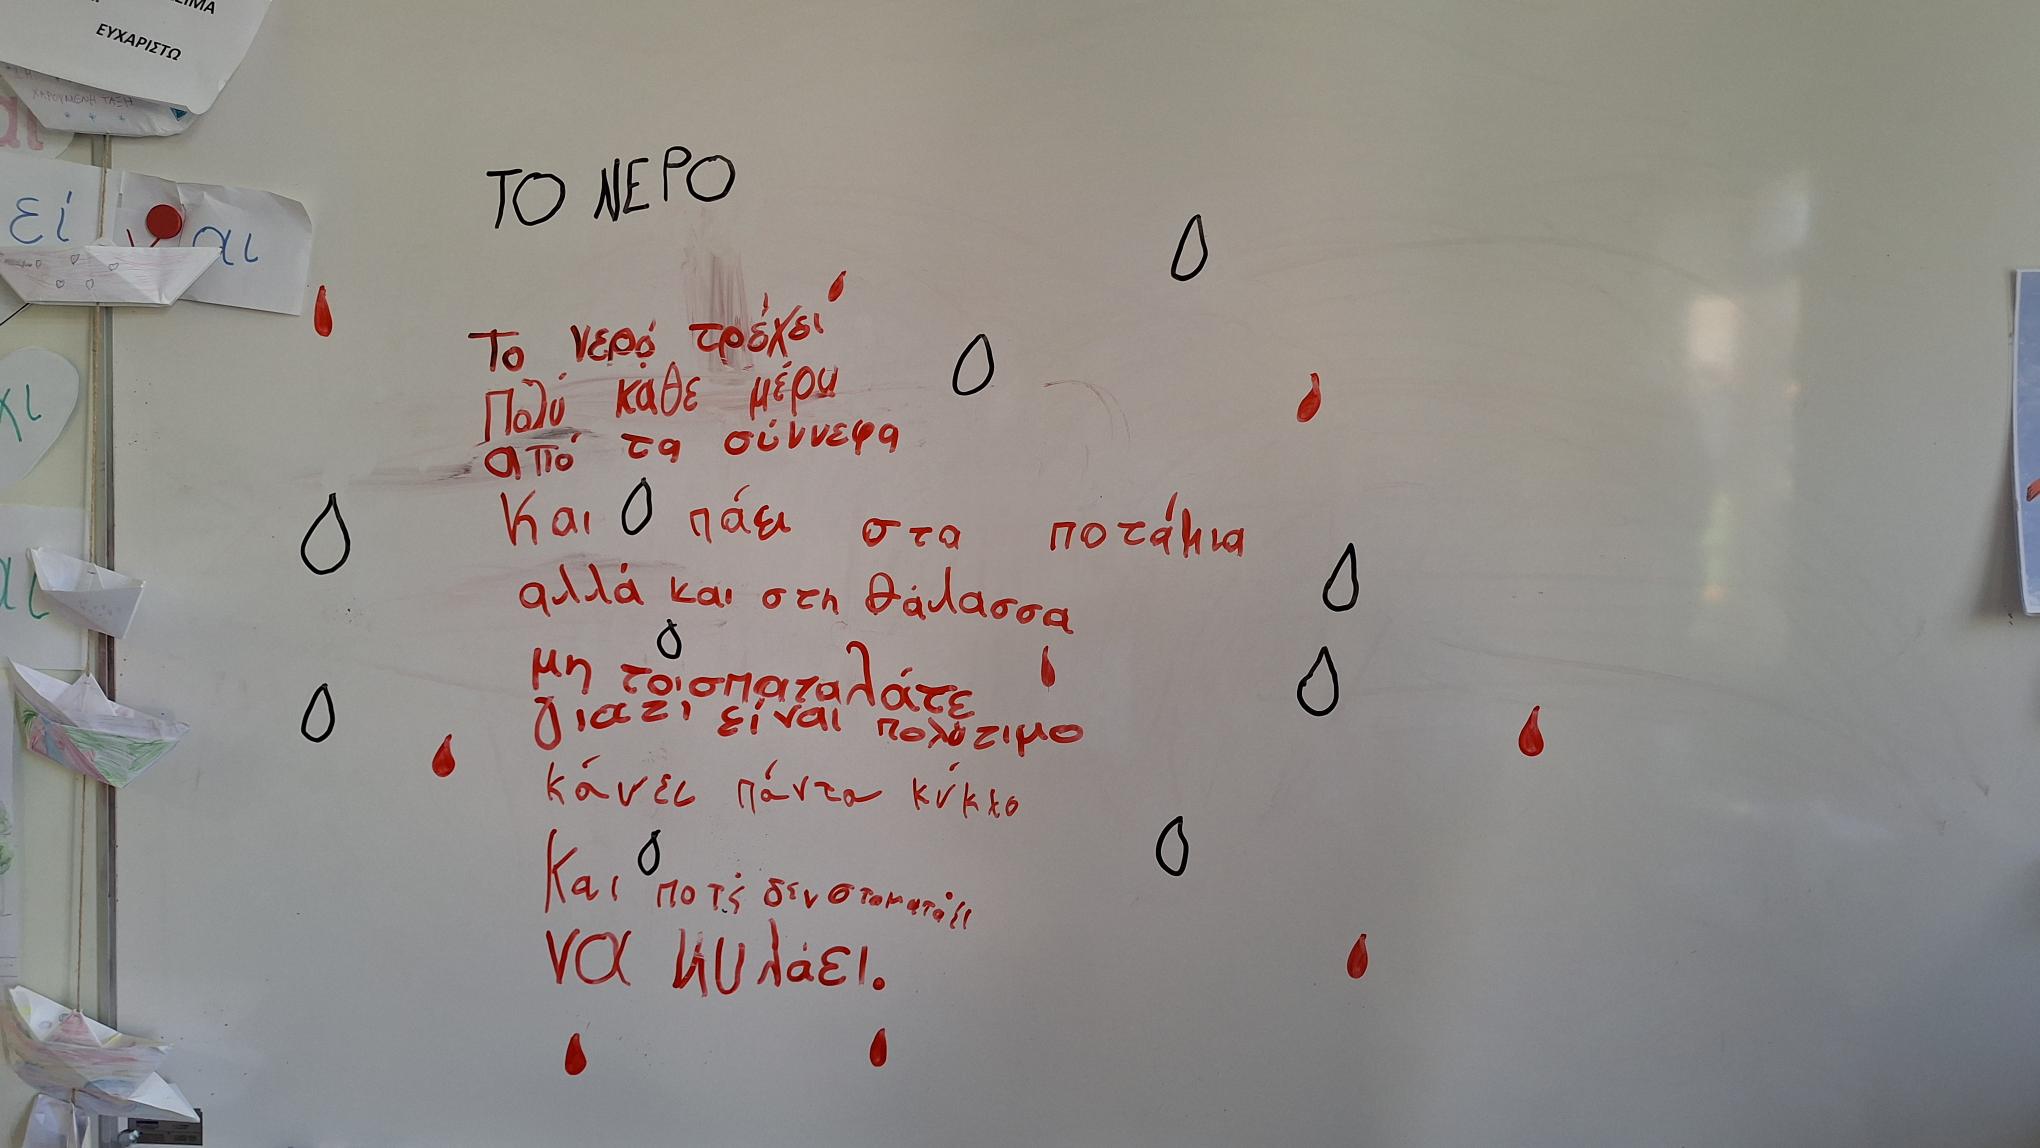 ΕΥΧΑΡΙΣΤΩ
ΧΑΡΟΥΜΕΝΗ ΤΑΞΗ
εί ν αι
χι
ΤΟ ΝΕΡΟ
Το νερό τρέχει
Πολύ κάθε μέρα
από τα σύννεφα
Και πάει στα ποτάμια
αλλά και στη θάλασσα
μη το σπαταλάτε
γιατί είναι πολύτιμο
κάνει πάντα κύκλο
Και ποτέ δεν σταματάει
να κυλάει.